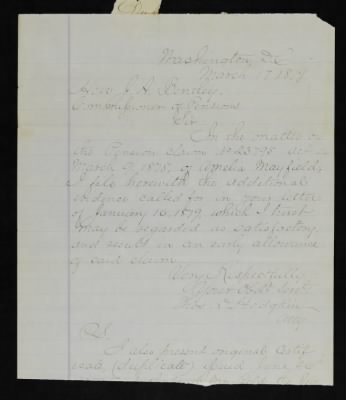 Washington, D.C.
March 17 187
Hon J. A. Bentley,
Commissioner of Pensions
Sir
In the matter o
the Pension claim No 23795 Act
March 9, 1878, of Amelia Mayfield,
I file herewith the additional
evidence called for in your letter
of January 16, 1879, which I trust
may be regarded as satisfactory,
and result in an early allowance
of said claim.
Very Respectfully
Your Obdt Servt
Thos. Hodgkin
Atty
S.
I also present original certif
icate, (duplicate) dated June